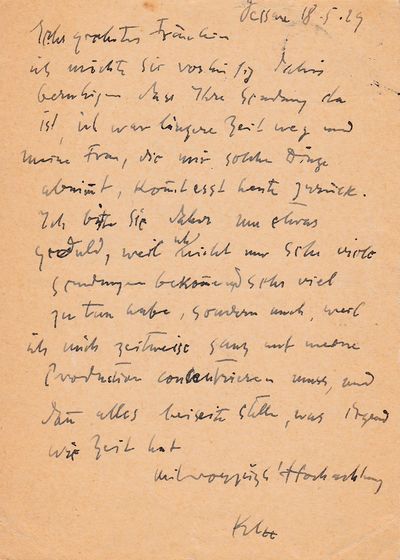 Dessau 18.5.29
Sehr geehrtes Fräulein
ich möchte Sie vorläufig dahin
beruhigen dass Ihre Sendung da
ist, ich war längere Zeit weg und
meine Frau, die mir solche Dinge
abnimmt, kommt erst heute zurück.
Ich bitte Sie daher um etwas
Geduld, weil ich nicht nur sehr viele
Sendungen bekomme und sehr viel
zu tun habe, sondern auch, weil
ich mich zeitweise ganz auf meine
Production concentrieren muss, und
dann alles beiseite stelle, was irgend
wie Zeit hat
Mit vorzügl Hochachtung
Klee